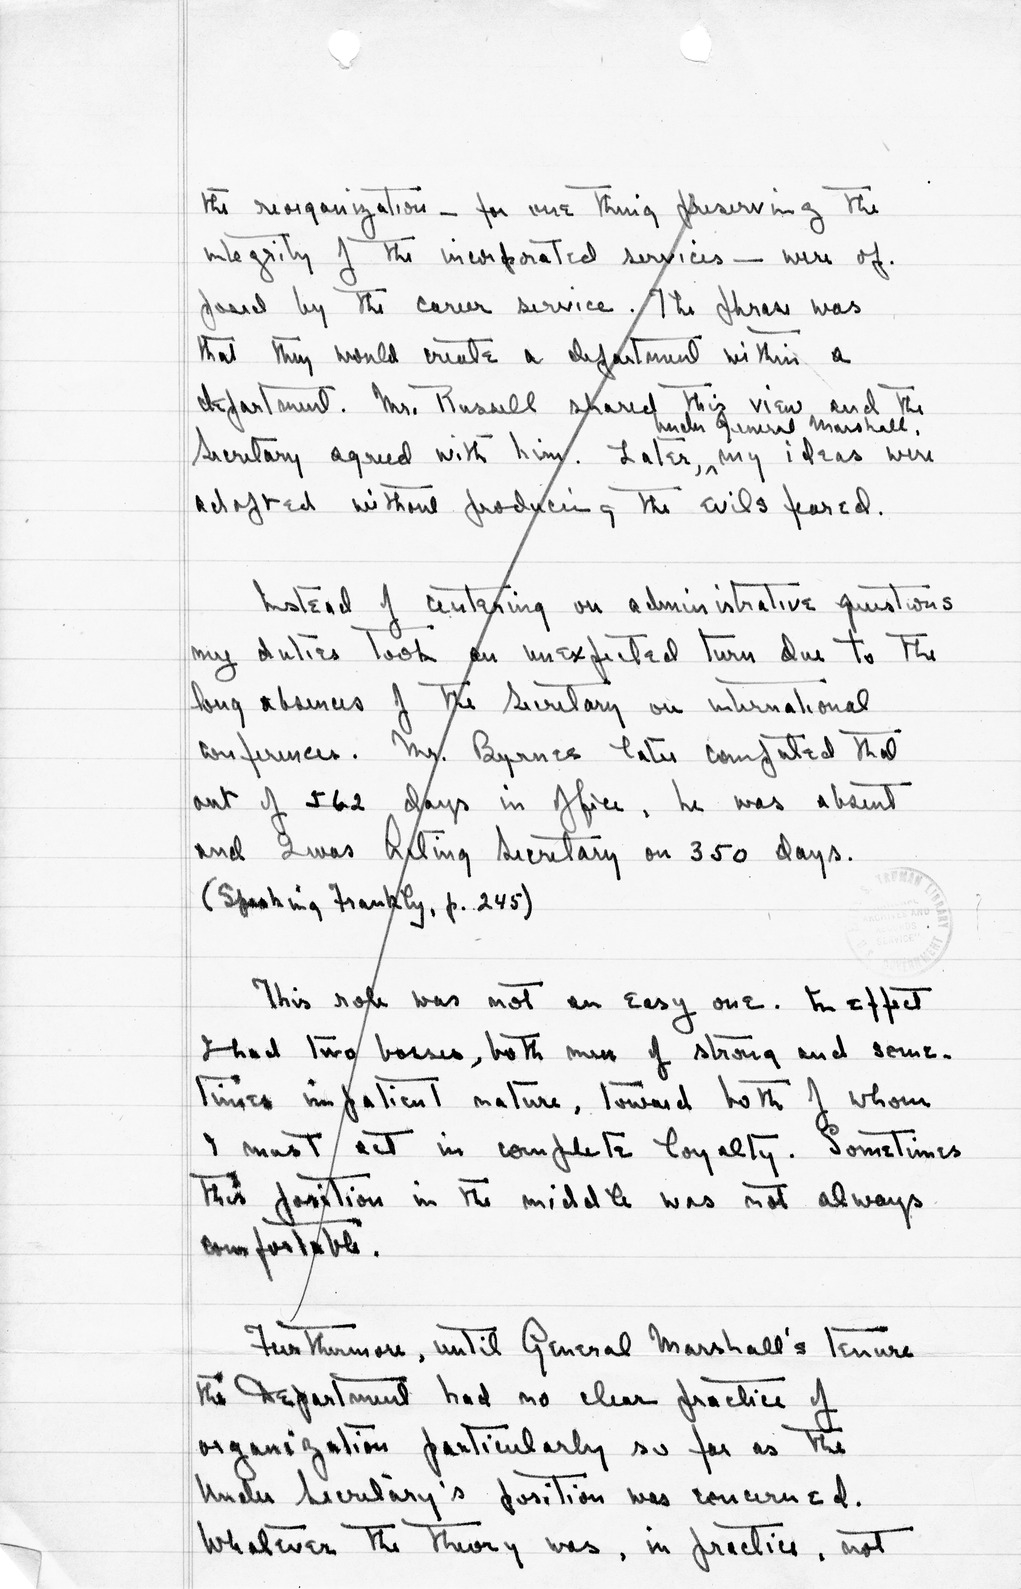 the reorganization — for one thing preserving the
integrity of the incorporated services — were op-
posed by the career service. The phrase was
that they would create a department within a
department. Mr. Russell shared this view and the
under General Marshall,
Secretary agreed with him. Later, ^ my ideas were
adopted without producing the evils feared.
Instead of centering on administrative questions
my duties took an unexpected turn due to the
long absences of the Secretary on international
conferences. Mr. Byrnes later computed that
out of 562 days in office, he was absent
and I was Acting Secretary on 350 days.
(Speaking Frankly, p. 245)
This role was not an easy one. In effect
I had two bosses, both men of strong and some-
times impatient nature, toward both of whom
I must act in complete loyalty. Sometimes
this position in the middle was not always
comfortable.
Furthermore, until General Marshall's tenure
the Department had no clear practice of
organization particularly so far as the
Under Secretary's position was concerned.
Whatever the theory was, in practice, not
TRUMAN LIBRARY
ARCHIVES AND
SERVICE
GOVERNMENT